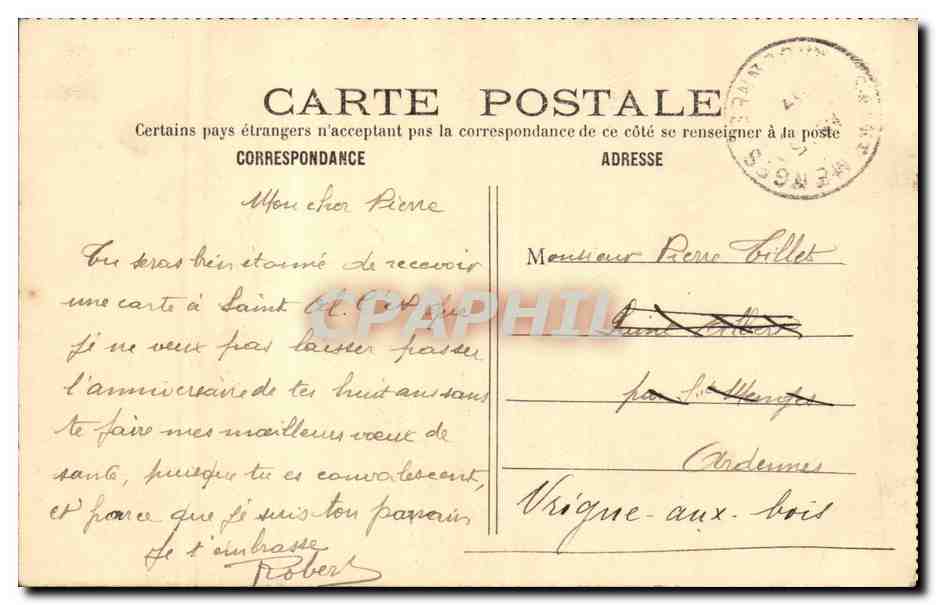 CARTE POSTALE
Certains pays étrangers n'acceptant pas la correspondance de ce côté se renseigner à la poste
CORRESPONDANCE
ADRESSE
Mon cher Pierre
Tu seras bien étonné de recevoir
une carte à Saint Al. C'est que
je ne veux pas laisser passer
l'anniversaire de tes huit ans sans
te faire mes meilleurs vœux de
santé, puisque tu es convalescent,
et parce que je suis ton parrain
Je t'embrasse
Robert
Monsieur Pierre Tillet
Saint Albert
par St Menges
Ardennes
Vrigne-aux-bois
CPAPHIL
MENGES